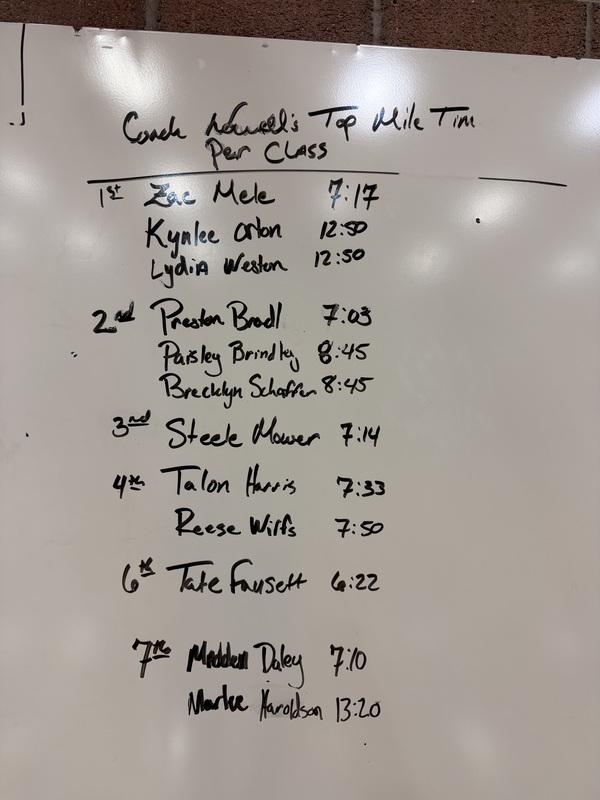 Coach Top Mile Tim
Per Class
1st Zac Mele 7:17
Kynlee Orton 12:50
Lydia Weston 12:50
2nd Preston Brodl 7:03
Paisley Brindley 8:45
Brecklyn Schaffer 8:45
3nd Steele Mower 7:14
4th Talon Harris 7:33
Reese Wilfs 7:50
6th Tate Fausett 6:22
7th Madden Daley 7:10
Marlee Haroldson 13:20